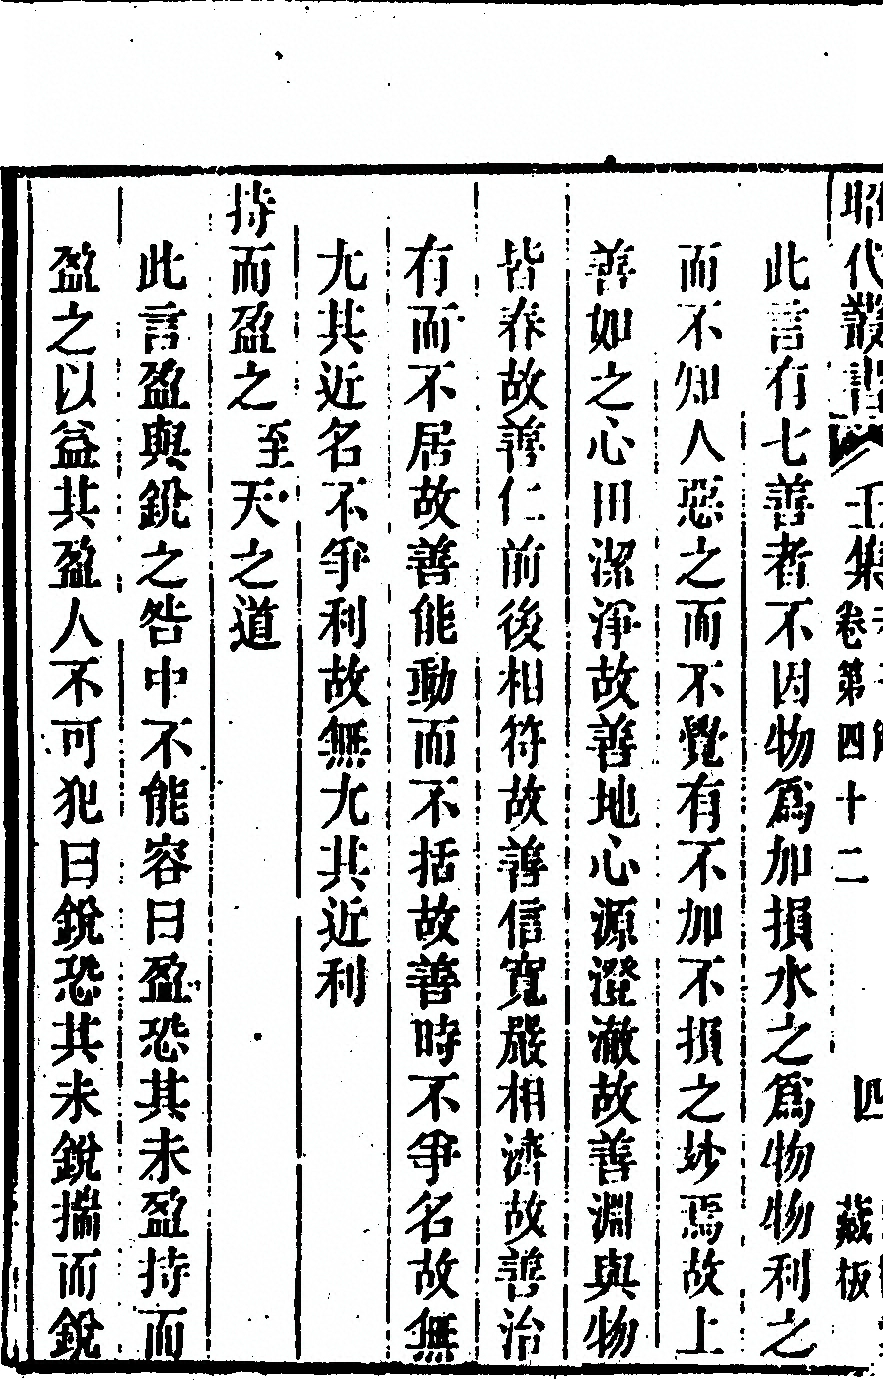 昭代叢書 壬集 卷第四十二 四 藏板
此言有七善者不因物爲加損水之爲物物利之
而不知人惡之而不覺有不加不損之妙焉故上
善如之心田潔淨故善地心源澄澈故善淵與物
皆春故善仁前後相符故善信寬嚴相濟故善治
有而不居故善能動而不括故善時不爭名故無
尤其近名不爭利故無尤其近利
持而盈之至天之道
此言盈與銳之咎中不能容曰盈恐其未盈持而
盈之以益其盈人不可犯曰銳恐其未銳揣而銳